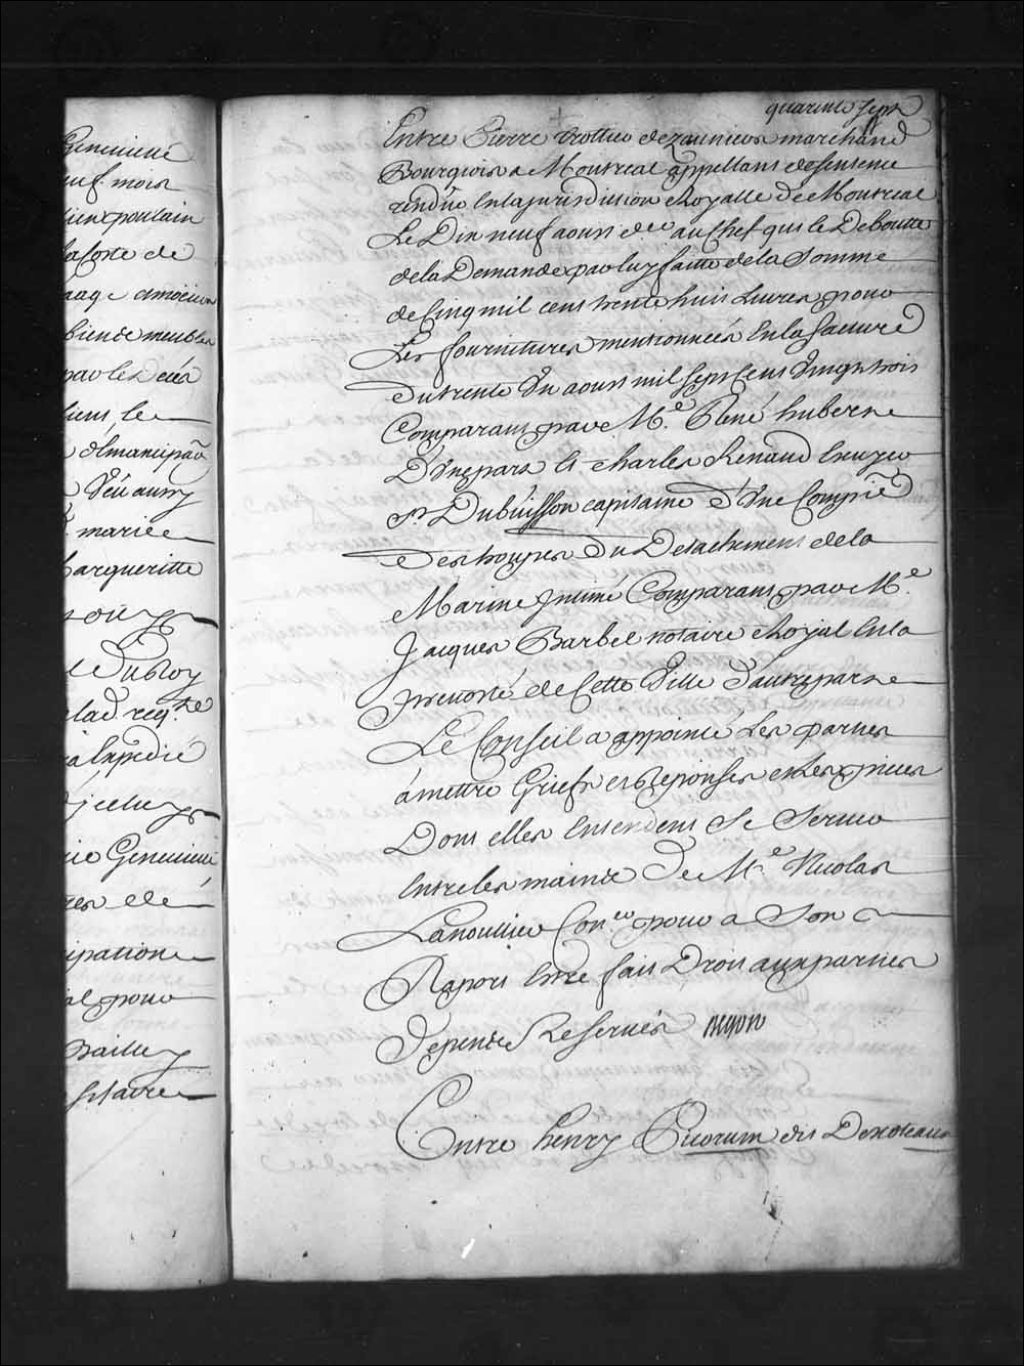 Genevieve
neuf mois
lien poulain
la Coste de
biens de meubles
par les
liens, le
d'Emancipaõn
mariée
Margueritte
du Roy
lad. req.te
Expedié
d'jcelle
Genevieve
cipation
pour
Bailly
quarente sept
Entre Pierre trottier dezauniers marchand
Bourgeois a Montreal appellant de sentence
rendüe En la jurisdiction Royalle de Montreal
Le Dix neuf aoust dr au Chef qui le Deboutte
de la Demande par luy faitte de la Somme
de Cinq mil cent trente huit Livres pour
Les fournitures mentionnées En la facture
du trente Un aoust mil sept Cens Vingt trois
Comparant par Me. René hubert
D'une part et Charles Renaud Ecuyer
sr. Dubuisson capitaine d'une Compnie
Des troupes du Detachement de la
Marine Jntimé Comparant par Me.
Jacques Barbel notaire Royal En la
prevosté de Cette Ville d'autre part
Le Conseil a appointé Les parties
a mettre Griefs et Reponses et Les pieces
Dont elles Entendent Se Servir
Entre les mains De Me. Nicolas
Lanoullier Coner. pour a Son
Raport Estre fait Droit aux parties
depens Reservés Begon
Entre henry Quorum dit Denoteaux